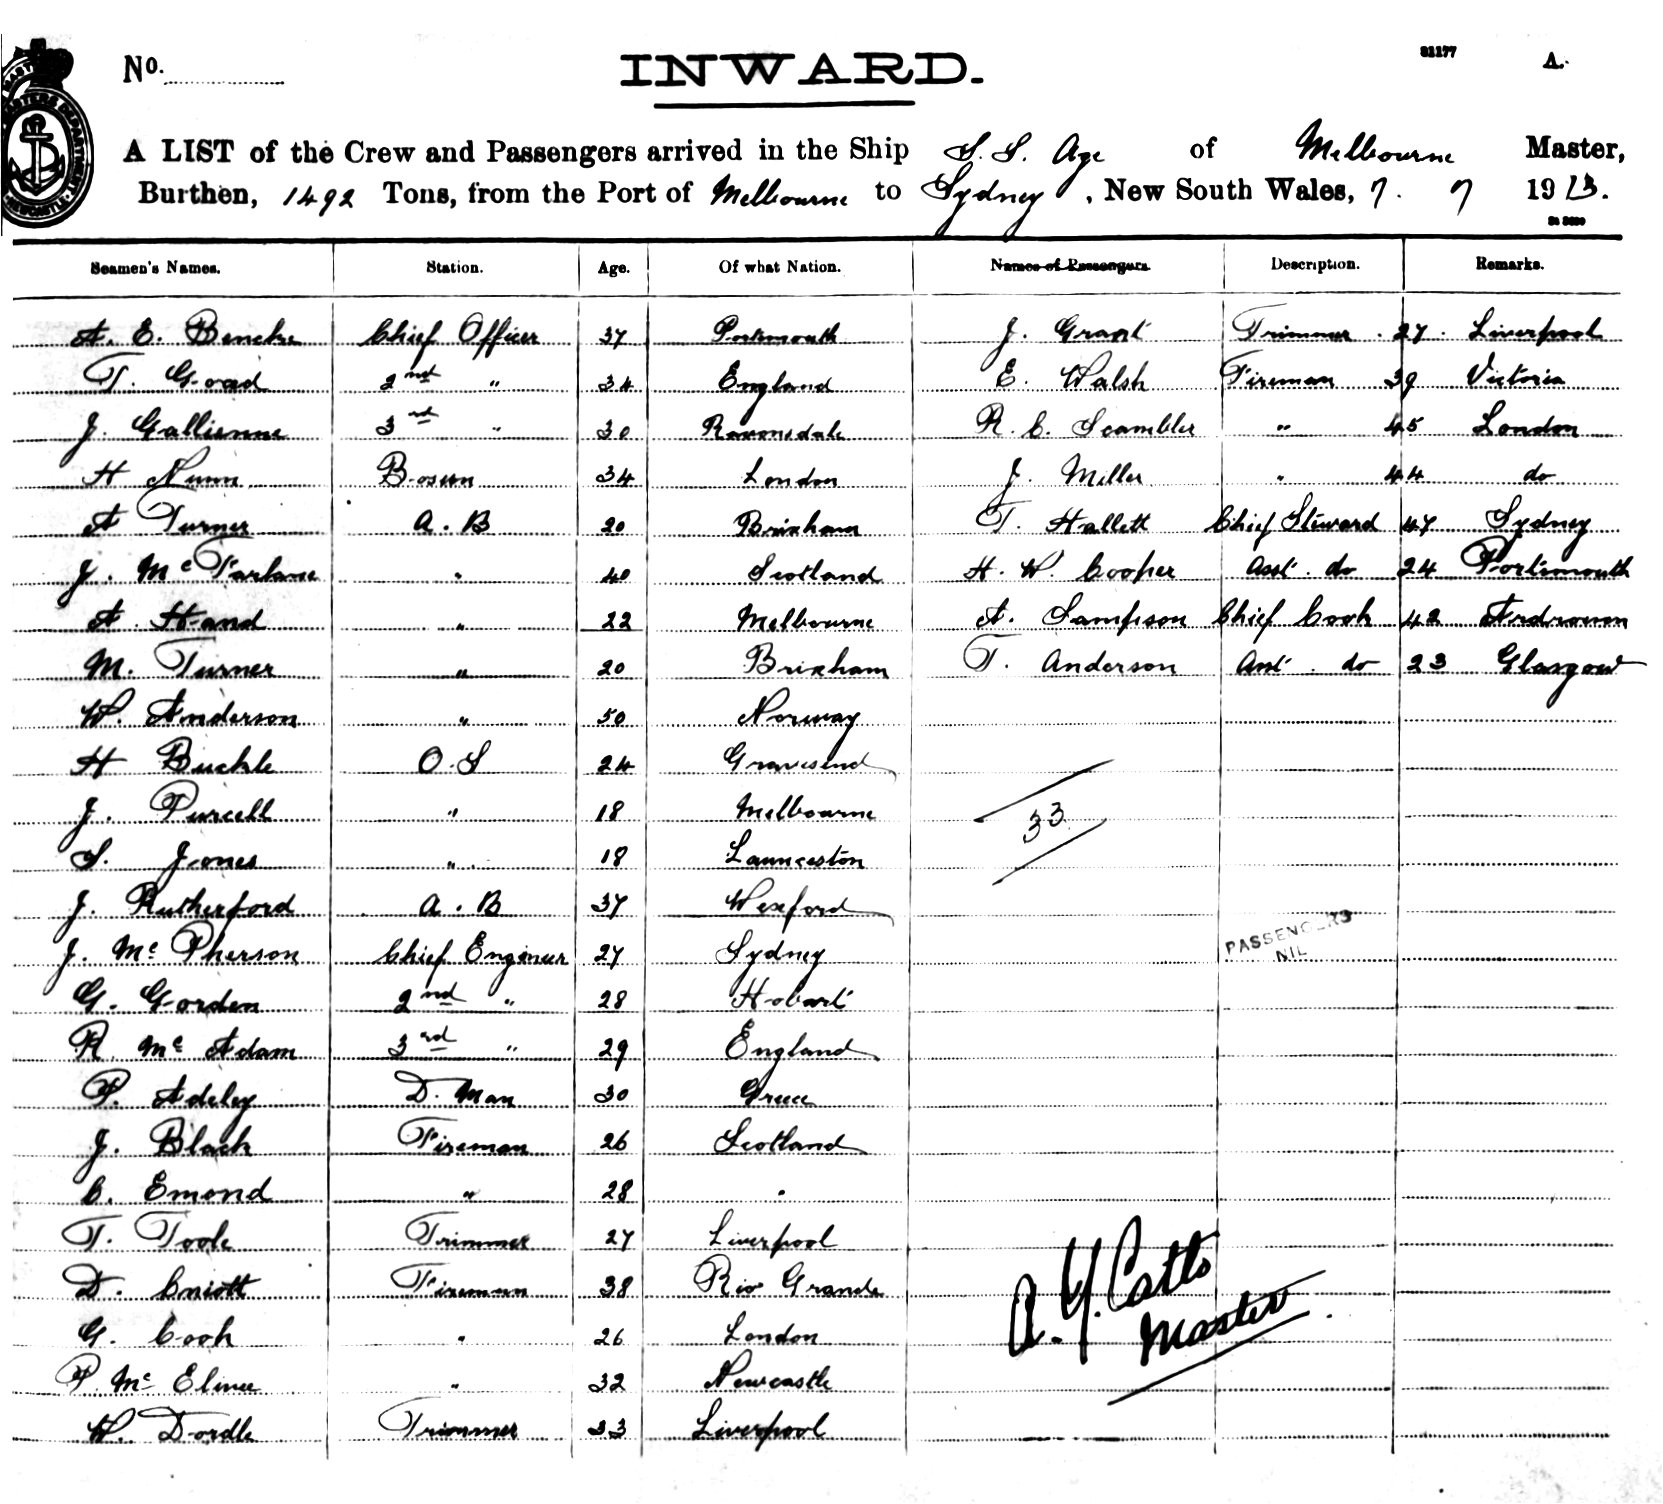 No.
INWARD.
31177
A.
A LIST of the Crew and Passengers arrived in the Ship S.S. Age of Melbourne Master,
Burthen, 1492 Tons, from the Port of Melbourne to Sydney, New South Wales, 7. 7 1913.
Seamen's Names. Station. Age. Of what Nation. Names of Passengers. Description. Remarks.
A. E. Bencke Chief Officer 37 Portsmouth J. Grant Trimmer. 27. Liverpool
T. Goad 2nd " 34 England E. Walsh Fireman 39 Victoria
J. Gallienne 3rd " 30 Ravonsdale R. C. Scambler " 45 London
H Nunn Bosun 34 London J. Miller " 44 do
A Turner A.B 20 Brixham T. Hallett Chief Steward 47 Sydney
J. McFarlane " 40 Scotland H. W. Cooper Asst. do 24 Portsmouth
A Hand " 22 Melbourne A. Sampson Chief Cook 42
M. Turner " 20 Brixham T. Anderson Asst. do 23 Glasgow
W. Anderson " 50 Norway
H Buckle O.S 24 Gravesend
J. Purcell " 18 Melbourne
33
S. Jones " 18 Launceston
J. Rutherford A.B 37 Wexford
PASSENGERS
NIL
J. McPherson Chief Engineer 27 Sydney
G. Gorden 2nd " 28 Hobart
R McAdam 3rd " 29 England
P. Adeley D. Man 30 Greece
J. Black Fireman 26 Scotland
C. Emond " 28 "
T. Took Trimmer 27 Liverpool
D. Fireman 38 Rio Grande
A. Y. Catto
Master.
G. Cook " 26 London
P. Mc " 32 Newcastle
W. Dordle Trimmer 33 Liverpool